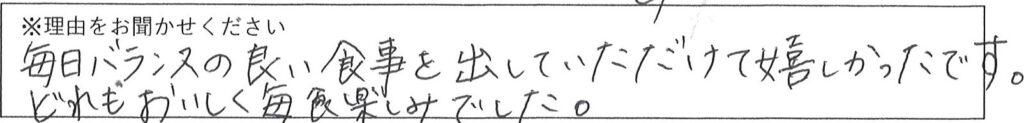 ※理由をお聞かせください
毎日バランスの良い食事を出していただけて嬉しかったです。
どれもおいしく毎食楽しみでした。